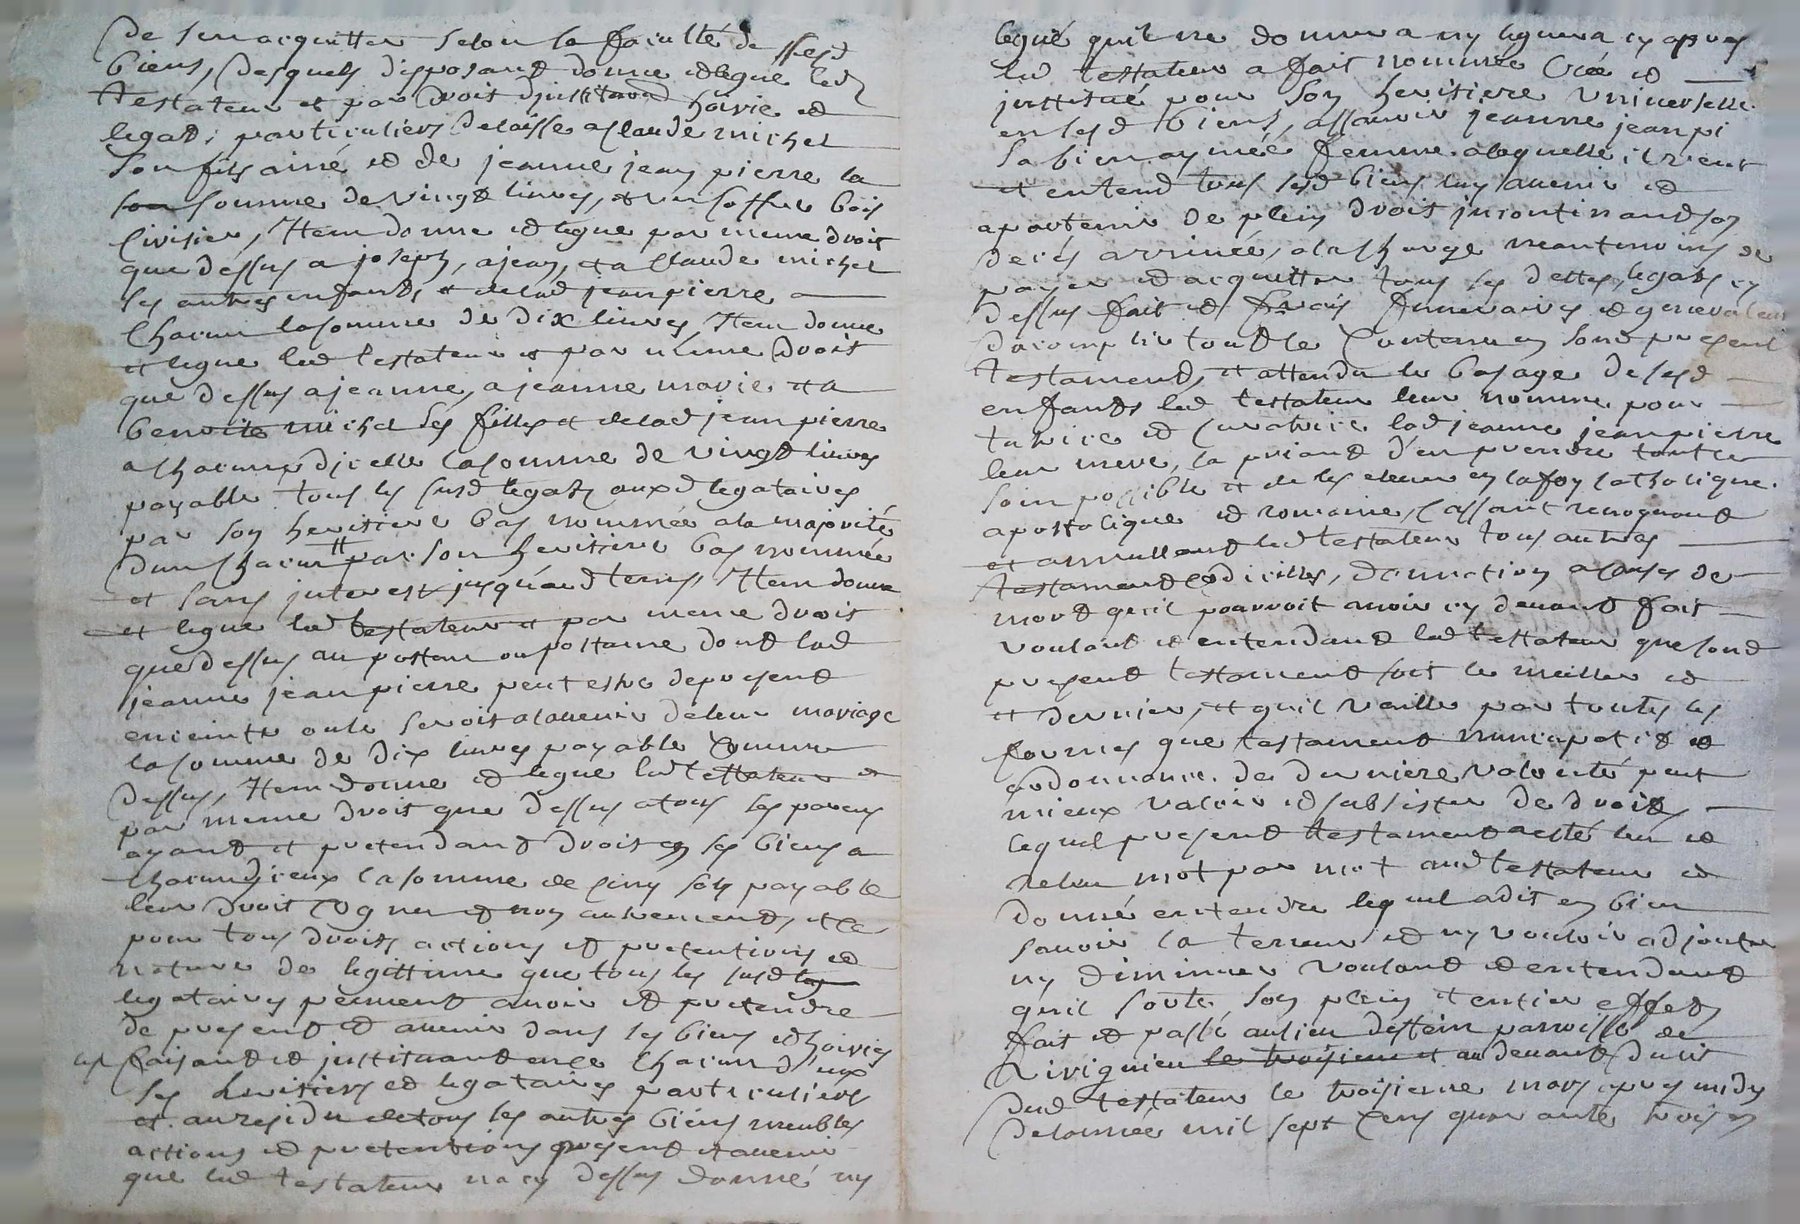 de s'en acquitter selon la faculté de sesd
biens, desquels disposant donne et legue led
testateur et par droit d'institution hoirie et
legat particuliers delaisse a claude michel
son fils ainé et de jeanne jean pierre la
somme de vingt livres, et un coffre bois
Item donne et legue par meme droit
que dessus a joseph, a jean, et a claude michel
ses autres enfants et de lad jean pierre
chacun la somme de dix livres, Item donne
et legue led testateur et par meme droit
que dessus a jeanne, a jeanne marie et a
benoite michel ses filles et de lad jean pierre
a chacune d'icelle la somme de vingt livres
payable tous les susd legats auxd legataires
par son heritiere bas nommée a la majorité
d'un chacun par son heritiere bas nommée
et sans interest jusqu'aud tems, Item donne
et legue led testateur et par meme droit
que dessus au postume ou postume dont lad
jeanne jean pierre peut estre de present
enceinte ou le seroit a l'avenir de leur mariage
la somme de dix livres payable comme
dessus, Item donne et legue led testateur et
par meme droit que dessus a tous ses parens
ayant et pretendant droit en ses biens a
chacun d'iceux la somme de cinq sols payable
leur droit cognu et non autrement, et ce
pour tous droits actions et pretentions et
nature de legittime que tous les susd leg
legataires peuvent avoir et pretendre
de present et avenir dans ses biens et hoiries
les faisant et instituant en ce chacun d'eux
ses heritiers et legataires particuliers
et au residu de tous les autres biens meubles
actions et pretentions present et avenir
que led testateur n'a cy dessus donné ny
legué qu'il ne donnera ny leguera cy apres
led testateur a fait nommée creé et
institué pour son heritiere universelle
en sesd biens, assavoir jeanne jean pi
sa bien aymée femme a laquelle il veut
et entend tous sesd biens luy avenir et
apartenir de plein droit incontinant son
deces arrivée, a la charge neantmoins de
payer et acquitter tous ses dettes, legats cy
dessus fait et frais funeraires et generalem
d'acomplir tout le contenu en sond present
testament, et attendu le bas age de sesd
enfants led testateur leur nomme pour
tutrice et curatrice lad jeanne jean pierre
leur mere, la priant d'en prendre tout le
soin possible et de les elever en la foy catholique
apostolique et romaine, cassant revoquant
et annullant led testateur tous autres
testament codicilles, donnation a cause de
mort qu'il pourroit avoir cy devant fait
voulant et entendant led testateur que sond
present testament soit le meilleur et
et dernier, et qu'il vaille par toutes les
formes que testament nuncupatif et
ordonnance de derniere volonté peut
mieux valoir et subsister de droit
lequel present testament a esté leu et
releu mot par mot aud testateur et
donné entendre lequel a dit en bien
savoir la teneur et ny vouloir adjouter
ny diminuer voulant et entendant
qu'il sorte son plein et entier effet
fait et passé au lieu destein parroisse de
Virignieu le troisieme et au devant duit
dud testateur le troisieme mars apres midy
de l'année mil sept cens quarante trois en